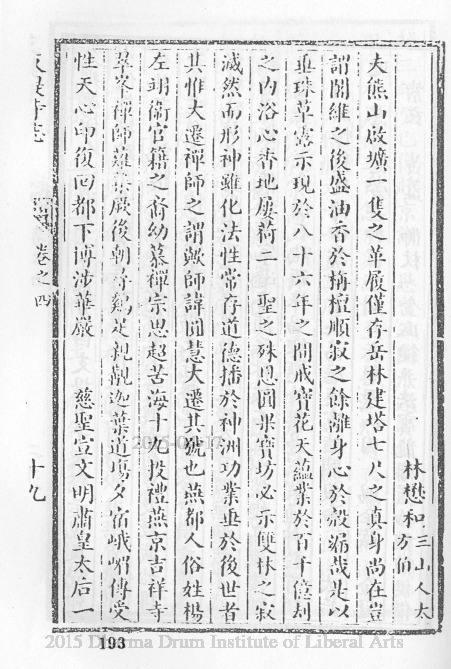 林懋和三山人太方伯
夫熊山啟壙一隻之革履僅存岳林建塔七尺之真身尚在豈
謂闍維之後盛油香於栴檀順寂之餘離身心於殼漏哉是以
垂珠草露示現於八十六年之間戒寶花天蘊業於百千億刼
之內浴心香地屢荷二聖之殊恩圓果寶坊必示雙林之寂
滅然而形神雖化法性常存道德播於神洲功業垂於後世者
其惟大遷禪師之謂歟師諱圓慧大遷其號也燕都人俗姓楊
左翊衞官籍之裔幼慕禪宗思超苦海十九投禮燕京吉祥寺
翠峯禪師薙染厥後朝寺鷄足親覩迦葉道塲夕宿峨嵋傳受
性天心印復回都下博涉華嚴 慈聖宣文明肅皇太后一
寺志
卷之四
十九
193
2015 Dharma Drum Institute of Liberal Arts